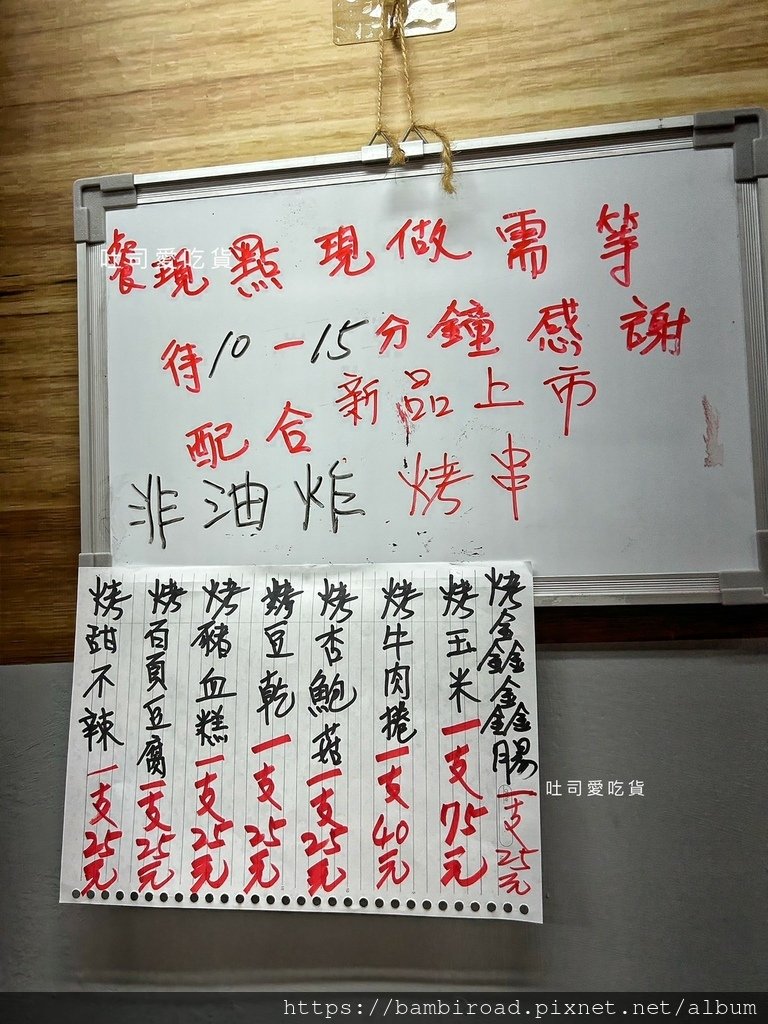 餐現點現做需等
待10-15分鐘感謝
配合新品上市
非油炸烤串
烤鑫鑫腸一支25元
烤玉米一支75元
烤牛肉捲一支40元
烤杏鮑菇一支25元
烤豆乾一支25元
烤豬血糕一支25元
烤百頁豆腐一支25元
烤甜不辣一支25元
吐司愛吃貨
吐司愛吃貨
https://bambiroad.pixnet.net/album